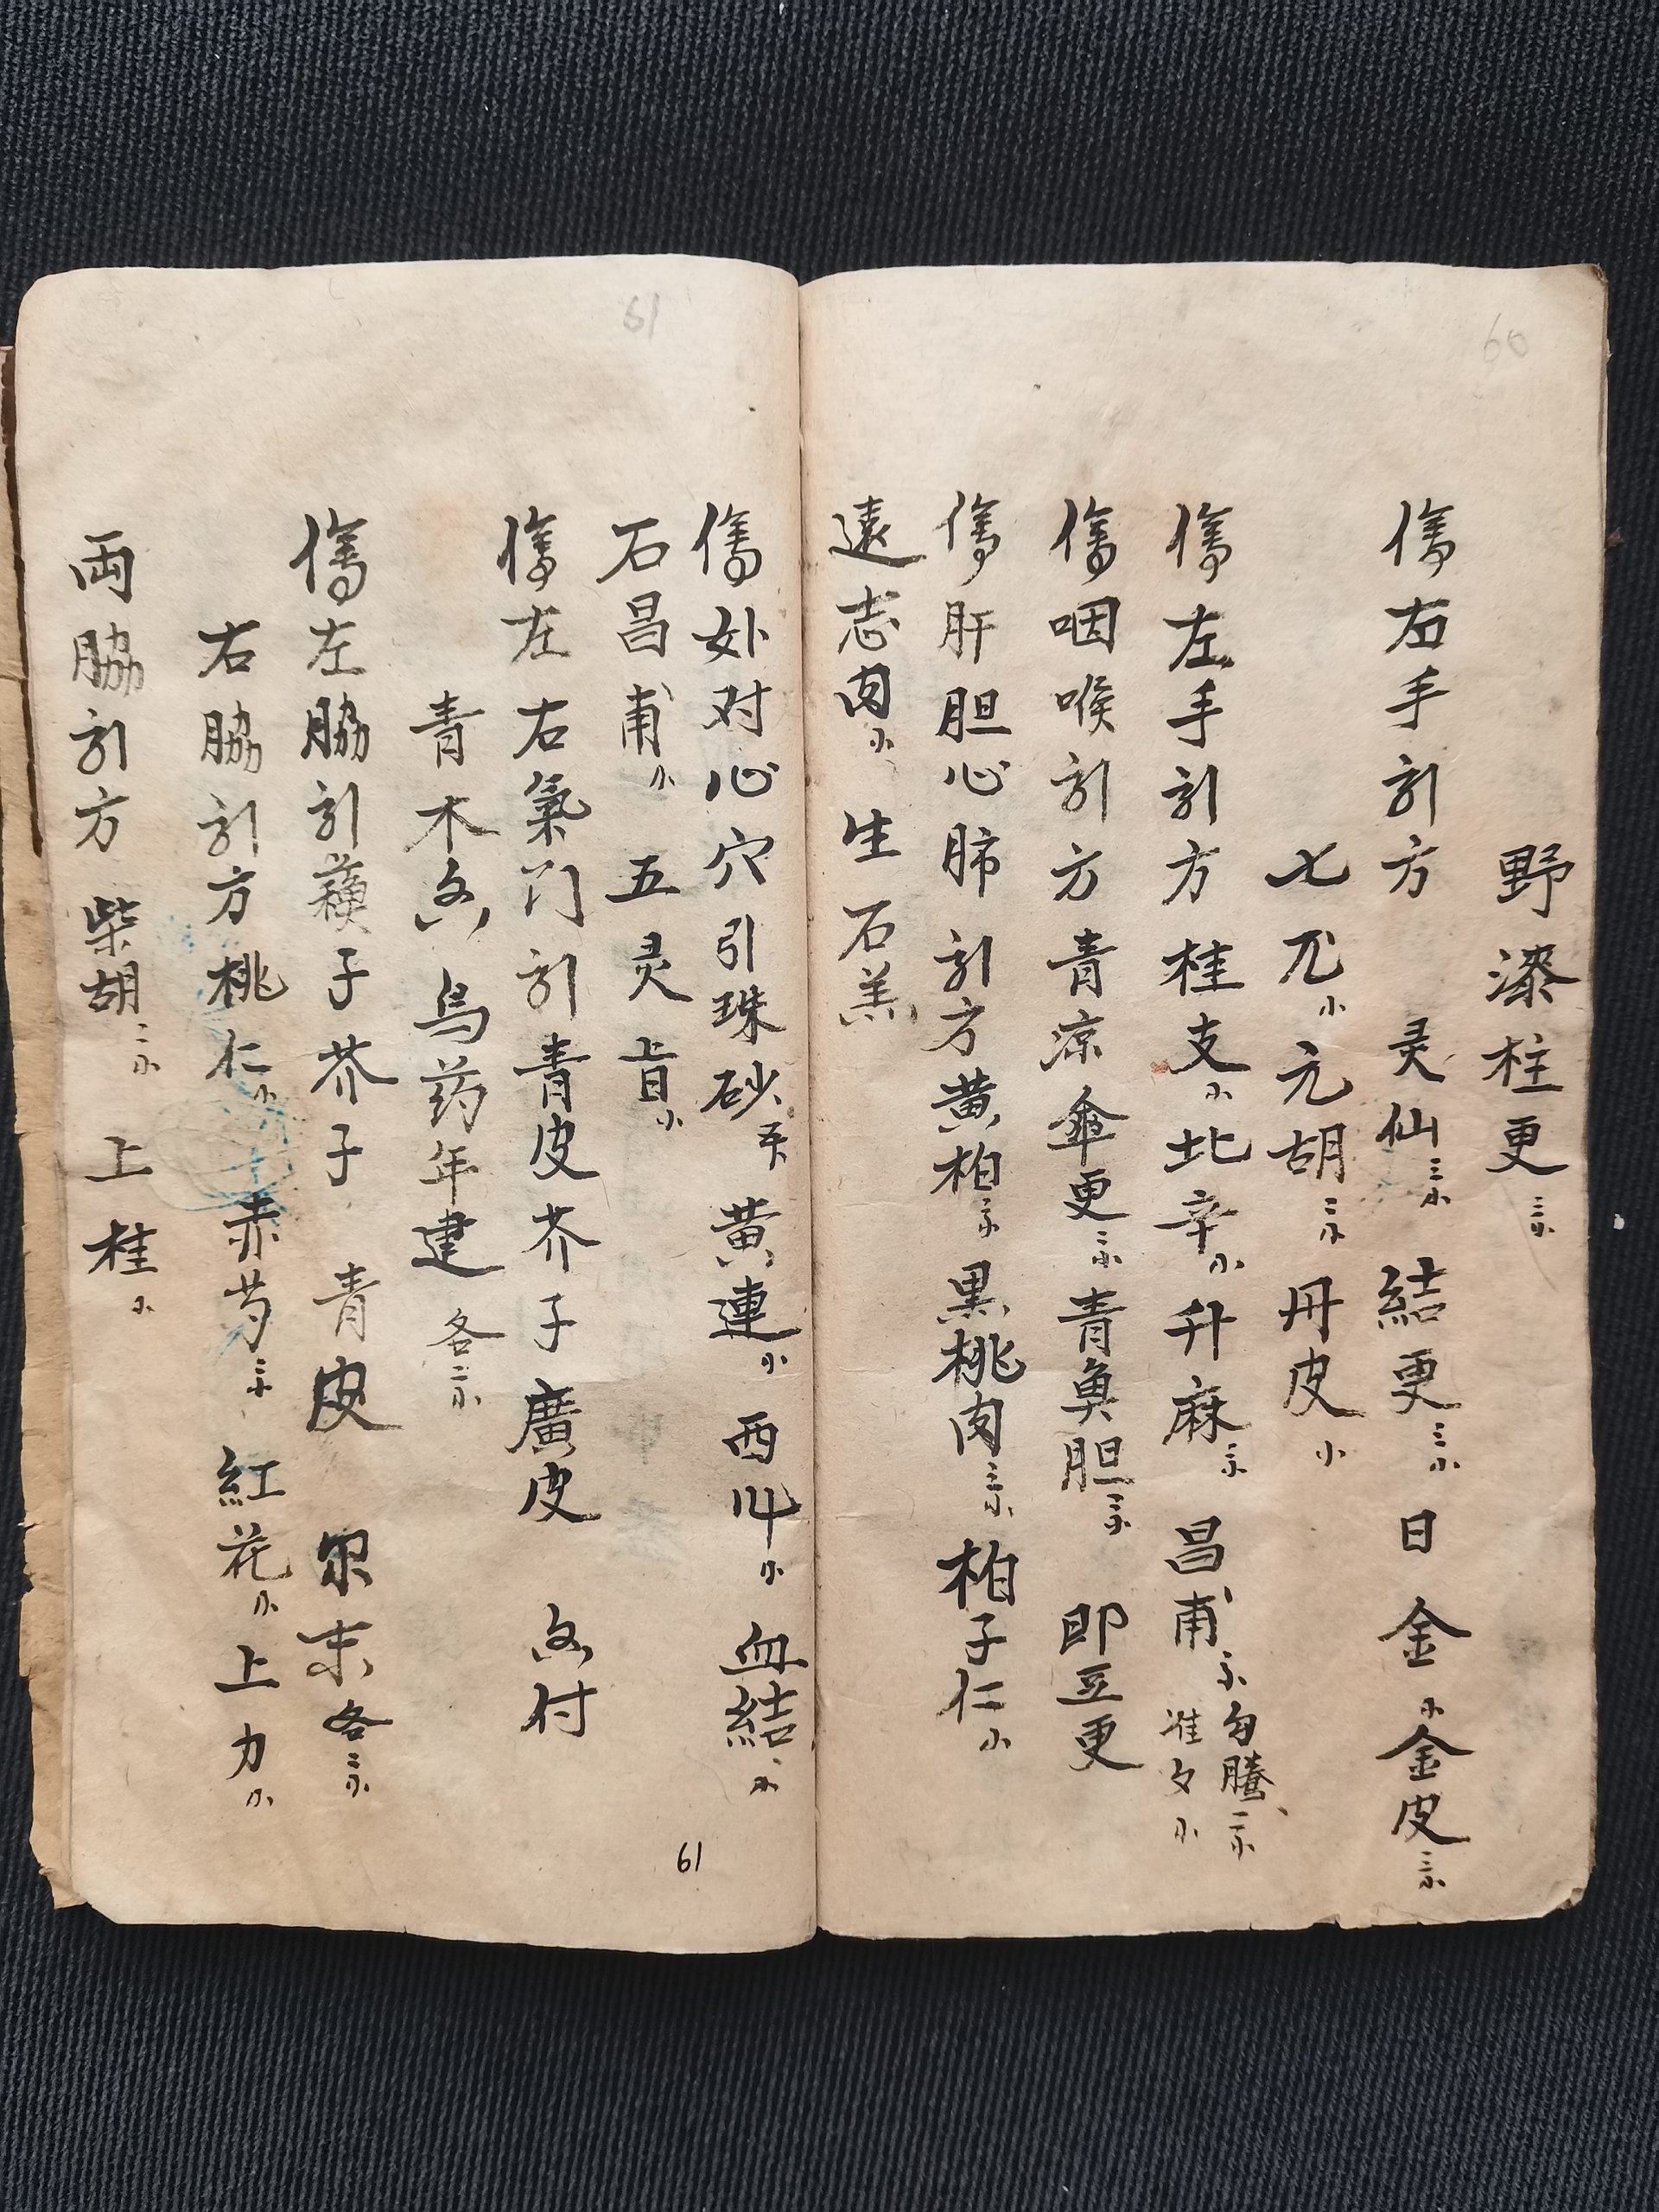 60
野漆柱更三小
傷右手引方 灵仙三小 結更三小 日金小金皮三小
七厼小元胡三小 丹皮小
傷左手引方桂支小北辛小升麻三小 昌甫小勾騰二小
准夕小
傷咽喉引方青凉傘更三小青魚胆三小 即豆更
傷肝胆心肺引方黄柏三小黒桃肉三小柏子仁小
遠志肉小 生石羔
61
傷妙对心穴引珠砂 黄連小 西叫小 血結小
石昌甫小 五灵旨小
傷左右氣门引青皮芥子廣皮 幺付
青木幺 烏药年建 各二小
傷左脇引蘔子芥子 青皮 末各三小
右脇引方桃仁小 赤芍三小 紅花小上力小
両脇引方 柴胡二小 上桂小
61